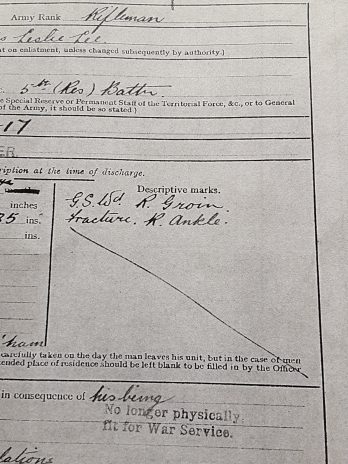 Army Rank Rifleman
s Leslie Lee
at on enlistment, unless changed subsequently by authority.)
5th (Res) Battn.
e Special Reserve or Permanent Staff of the Territorial Force, &c., or to General
of the Army, it should be so stated)
-17
ER
ription at the time of discharge.
inches
35 ins.
ins.
Descriptive marks.
G.S.Wd R. Groin.
fracture. R. Ankle.
'ham
carefully taken on the day the man leaves his unit, but in the case of men
tended place of residence should be left blank to be filled in by the Officer
in consequence of his being
No longer physically
fit for War Service.
lations